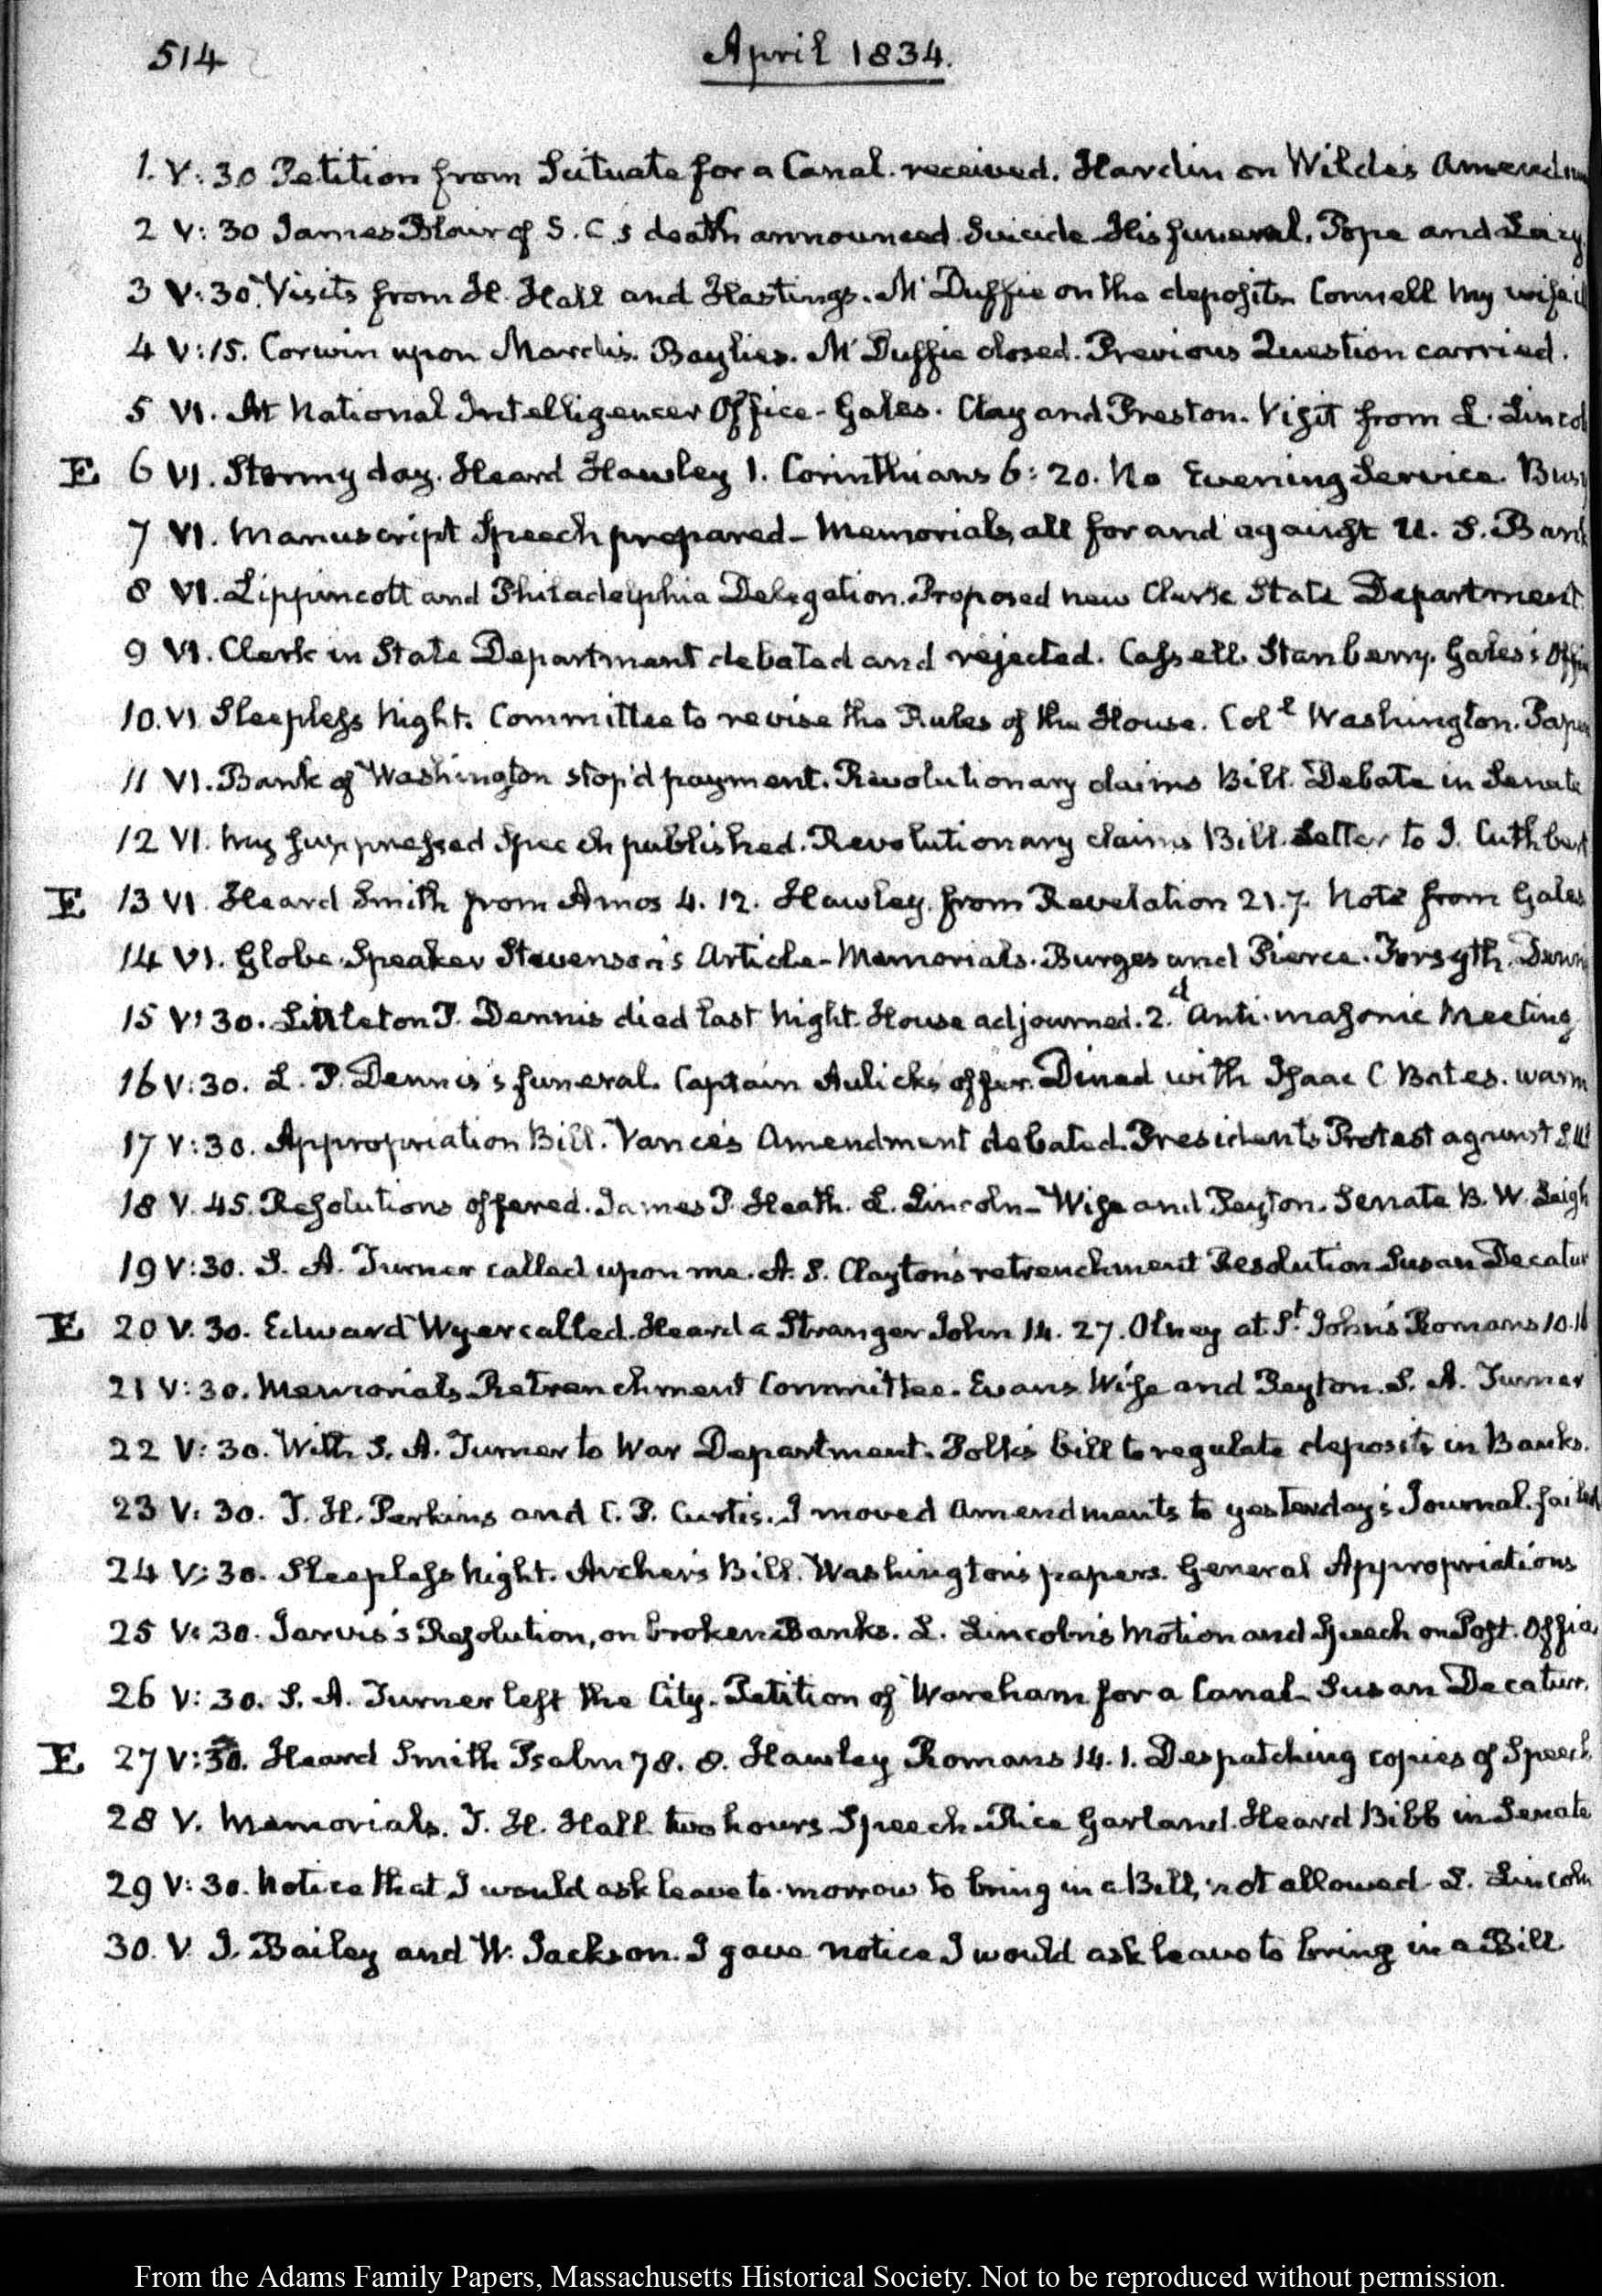 514
April 1834.
1. V: 30 Petition from Scituate for a Canal. received. Hardin on Wilde's
2 V: 30 James Blair of S. C.'s death announced Suicide His funeral. Pope and
3 V: 30. Visits from H. Hall and Hastings. Mc Duffie on the deposits Connell My wife
4 V: 15. Corwin upon Mardis. Baylies. Mc Duffie closed. Previous Question carried.
5 VI. At National Intelligencer Office - Gales. Clay and Preston. Visit from L.
E 6 VI. Stormy day. Heard Hawley 1. Corinthians 6: 20. No Evening Service.
7 VI. Manuscript Speech prepared - Memorials, all for and against U. S. Bank
8 VI. Lippincott and Philadelphia Delegation. Proposed new Clerk State Department.
9 VI. Clerk in State Department debated and rejected. Stanbery. Gales's
10. VI Sleepless Night. Committee to revise the Rules of the House. Col.l Washington.
11 VI. Bank of Washington stop'd payment. Revolutionary claims Bill. Debate in Senate
12 VI. My suppressed Speech published. Revolutionary claims Bill. Letter to J. Cuthbert
E 13 VI. Heard Smith from Amos 4. 12. Hawley. from Revelation 21. 7. Note from Gales
14 VI. Globe. Speaker Stevenson's Article - Memorials. Burges and Pierce. Forsyth.
15 V: 30. Littleton P. Dennis died last Night. House adjourned. 2.d Anti-masonic Meeting
16 V: 30. L. P. Dennis's funeral. Captain Aulick's offer. Dined with Isaac C Bates. warm
17 V: 30. Appropriation Bill. Vance's Amendment debated. President's Protest against
18 V. 45. Resolutions offered. James P. Heath. L. Lincoln - Wise and Peyton. Senate B. W. Leigh
19 V: 30. S. A. Turner called upon me. A. S. Clayton's retrenchment Resolution Susan Decatur
E 20 V. 30. Edward Wyer called. Heard a Stranger John 14. 27. Olney at St. John's Romans 10.
21 V: 30. Memorials Retrenchment Committee. Evans Wise and Peyton. S. A. Turner
22 V: 30. With S. A. Turner to War Department. Polk's bill to regulate deposits in Banks.
23 V: 30. T. H. Perkins and C. P. Curtis. I moved Amendments to yesterday's Journal. failed
24 V: 30. Sleepless Night. Archer's Bill. Washington's papers. General Appropriations
25 V: 30. Jarvis's Resolution, on broken Banks. L. Lincoln's Motion and Speech on Post. Office
26 V: 30. S. A. Turner left the City. Petition of Wareham for a Canal. Susan Decatur.
E 27 V: 30. Heard Smith Psalm 78. 8. Hawley Romans 14. 1. Despatching copies of Speech
28 V. Memorials. T. H. Hall two hours Speech. Rice Garland. Heard Bibb in Senate
29 V: 30. Notice that I would ask leave to-morrow to bring in a Bill, not allowed L. Lincoln
30. V J. Bailey and W. Jackson. I gave notice I would ask leave to bring in a Bill.
From the Adams Family Papers, Massachusetts Historical Society. Not to be reproduced without permission.